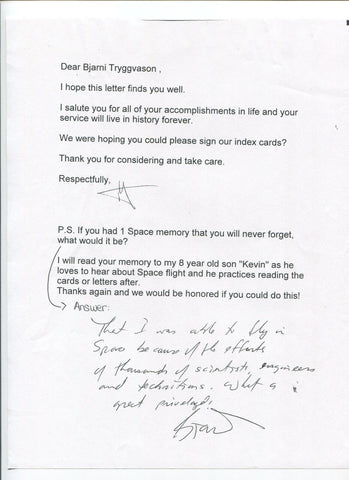 Dear Bjarni Tryggvason ,
I hope this letter finds you well.
I salute you for all of your accomplishments in life and your
service will live in history forever.
We were hoping you could please sign our index cards?
Thank you for considering and take care.
Respectfully,
P.S. If you had 1 Space memory that you will never forget,
what would it be?
I will read your memory to my 8 year old son "Kevin" as he
loves to hear about Space flight and he practices reading the
cards or letters after.
Thanks again and we would be honored if you could do this!
Answer:
That I was able to fly in
Space because of the efforts
of thousands of scientists, engineers
and technitians. What a
great priveledge.